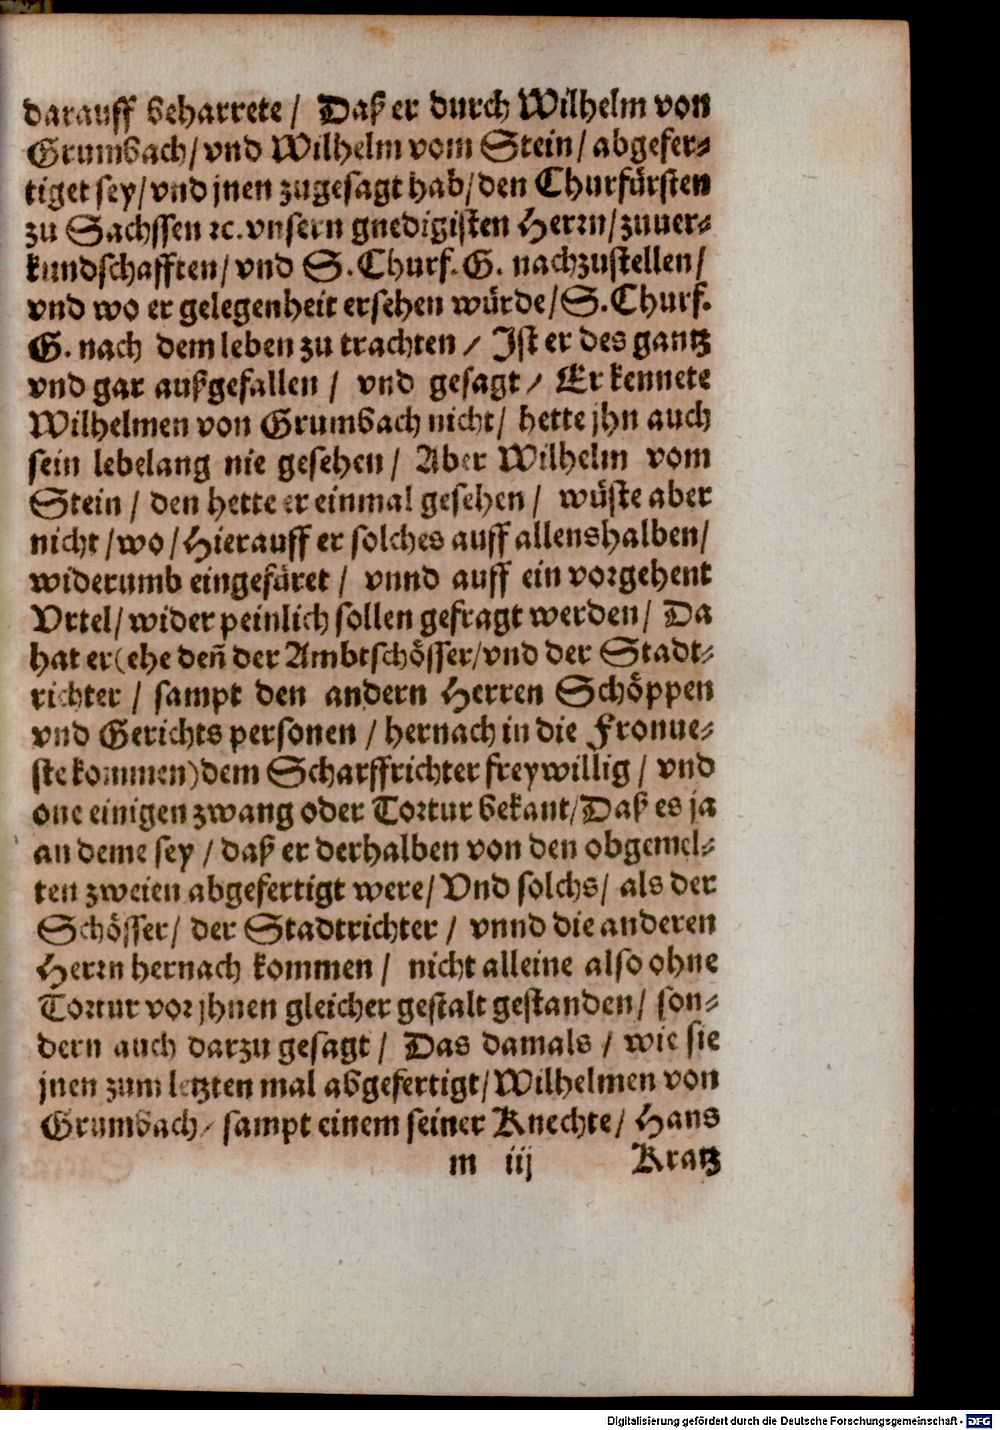 darauff beharrete / Daß er durch Wilhelm von
Grumbach / vnd Wilhelm vom Stein / abgefer⸗
tiget sey / vnd jnen zugesagt hab / den Churfürsten
zu Sachssen ꝛc. vnsern gnedigisten Herrn / zuuer⸗
kundschafften / vnd S. Churf. G. nachzustellen /
vnd wo er gelegenheit ersehen würde / S. Churf.
G. nach dem leben zu trachten / Jst er des gantz
vnd gar außgefallen / vnd gesagt / Er kennete
Wilhelmen von Grumbach nicht / hette jhn auch
sein lebelang nie gesehen / Aber Wilhelm vom
Stein / den hette er einmal gesehen / wüste aber
nicht / wo / Hierauff er solches auff allenshalben /
widerumb eingefüret / vnnd auff ein vorgehent
Vrtel / wider peinlich sollen gefragt werden / Da
hat er (ehe deñ der Ambtschösser / vnd der Stadt⸗
richter / sampt den andern Herren Schöppen
vnd Gerichts personen / hernach in die Fronue⸗
ste kommen) dem Scharffrichter freywillig / vnd
one einigen zwang oder Tortur bekant / Daß es ja
an deme sey / daß er derhalben von den obgemel⸗
ten zweien abgefertigt were / Vnd solchs / als der
Schösser / der Stadtrichter / vnnd die anderen
Herrn hernach kommen / nicht alleine also ohne
Tortur vor jhnen gleicher gestalt gestanden / son⸗
dern auch darzu gesagt / Das damals / wie sie
jnen zum letzten mal abgefertigt / Wilhelmen von
Grumbach / sampt einem seiner Knechte / Hans
m iij Kratz
Digitalisierung gefördert durch die Deutsche Forschungsgemeinschaft - DFG